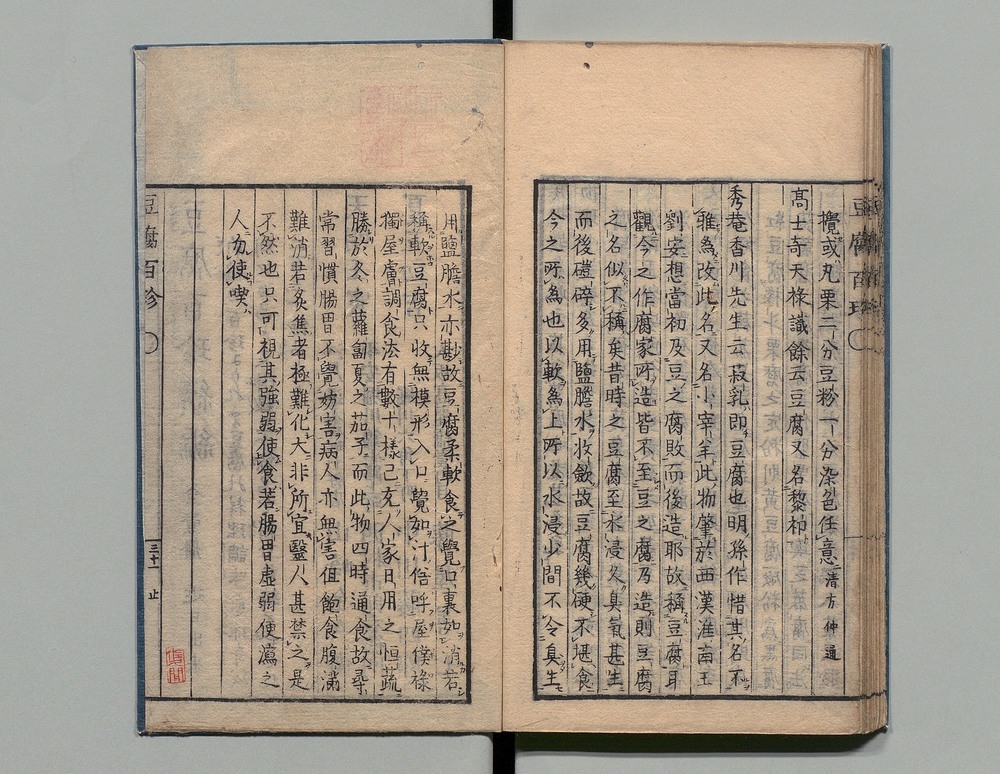 攪或丸栗二分豆粉一分染色任意清方仲通
高士奇天祿識餘云豆腐又名黎祁
秀菴香川先生云菽乳即豆腐也明孫作惜其名不
雅為改此名又名小宰羊此物肇於西漢淮南王
劉安想當初及豆之腐敗而後造耶故稱豆腐耳
觀今之作腐家所造皆不至豆之腐乃造則豆腐
之名似不稱矣昔時之豆腐至水浸久臭氣甚生
而後磑碎多用鹽膽水收歛故豆腐幾硬不堪食
今之所為也以軟為上所以水浸少間不令臭生
用鹽膽水亦尠故豆腐柔軟食之覺口裏如消若
稱軟豆腐只收無模形入口覺如汁俗呼屋僕祿
獨屋膚調食法有數十樣已充人家日用之恒蔬
勝於冬之蘿蔔夏之茄子而此物四時通食故尋
常習慣腸胃不覺妨害病人亦無害但飽食腹滿
難消若炙焦者極難化大非所宜醫人甚禁之是
不然也只可視其強弱使食若腸胃虛弱便瀉之
人勿使喫
豆腐百珍
三十一
止